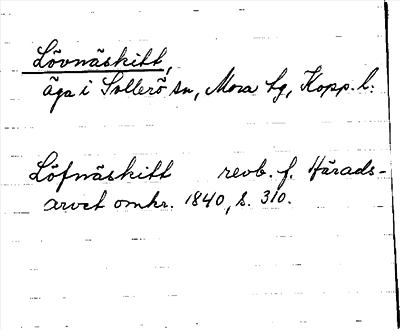 Lövnäskitt,
äga i Sollerö sn, Mora tg, Kopp. l:
Löfnäskitt revb. f. Härads-
arvet omkr. 1840, s. 310.